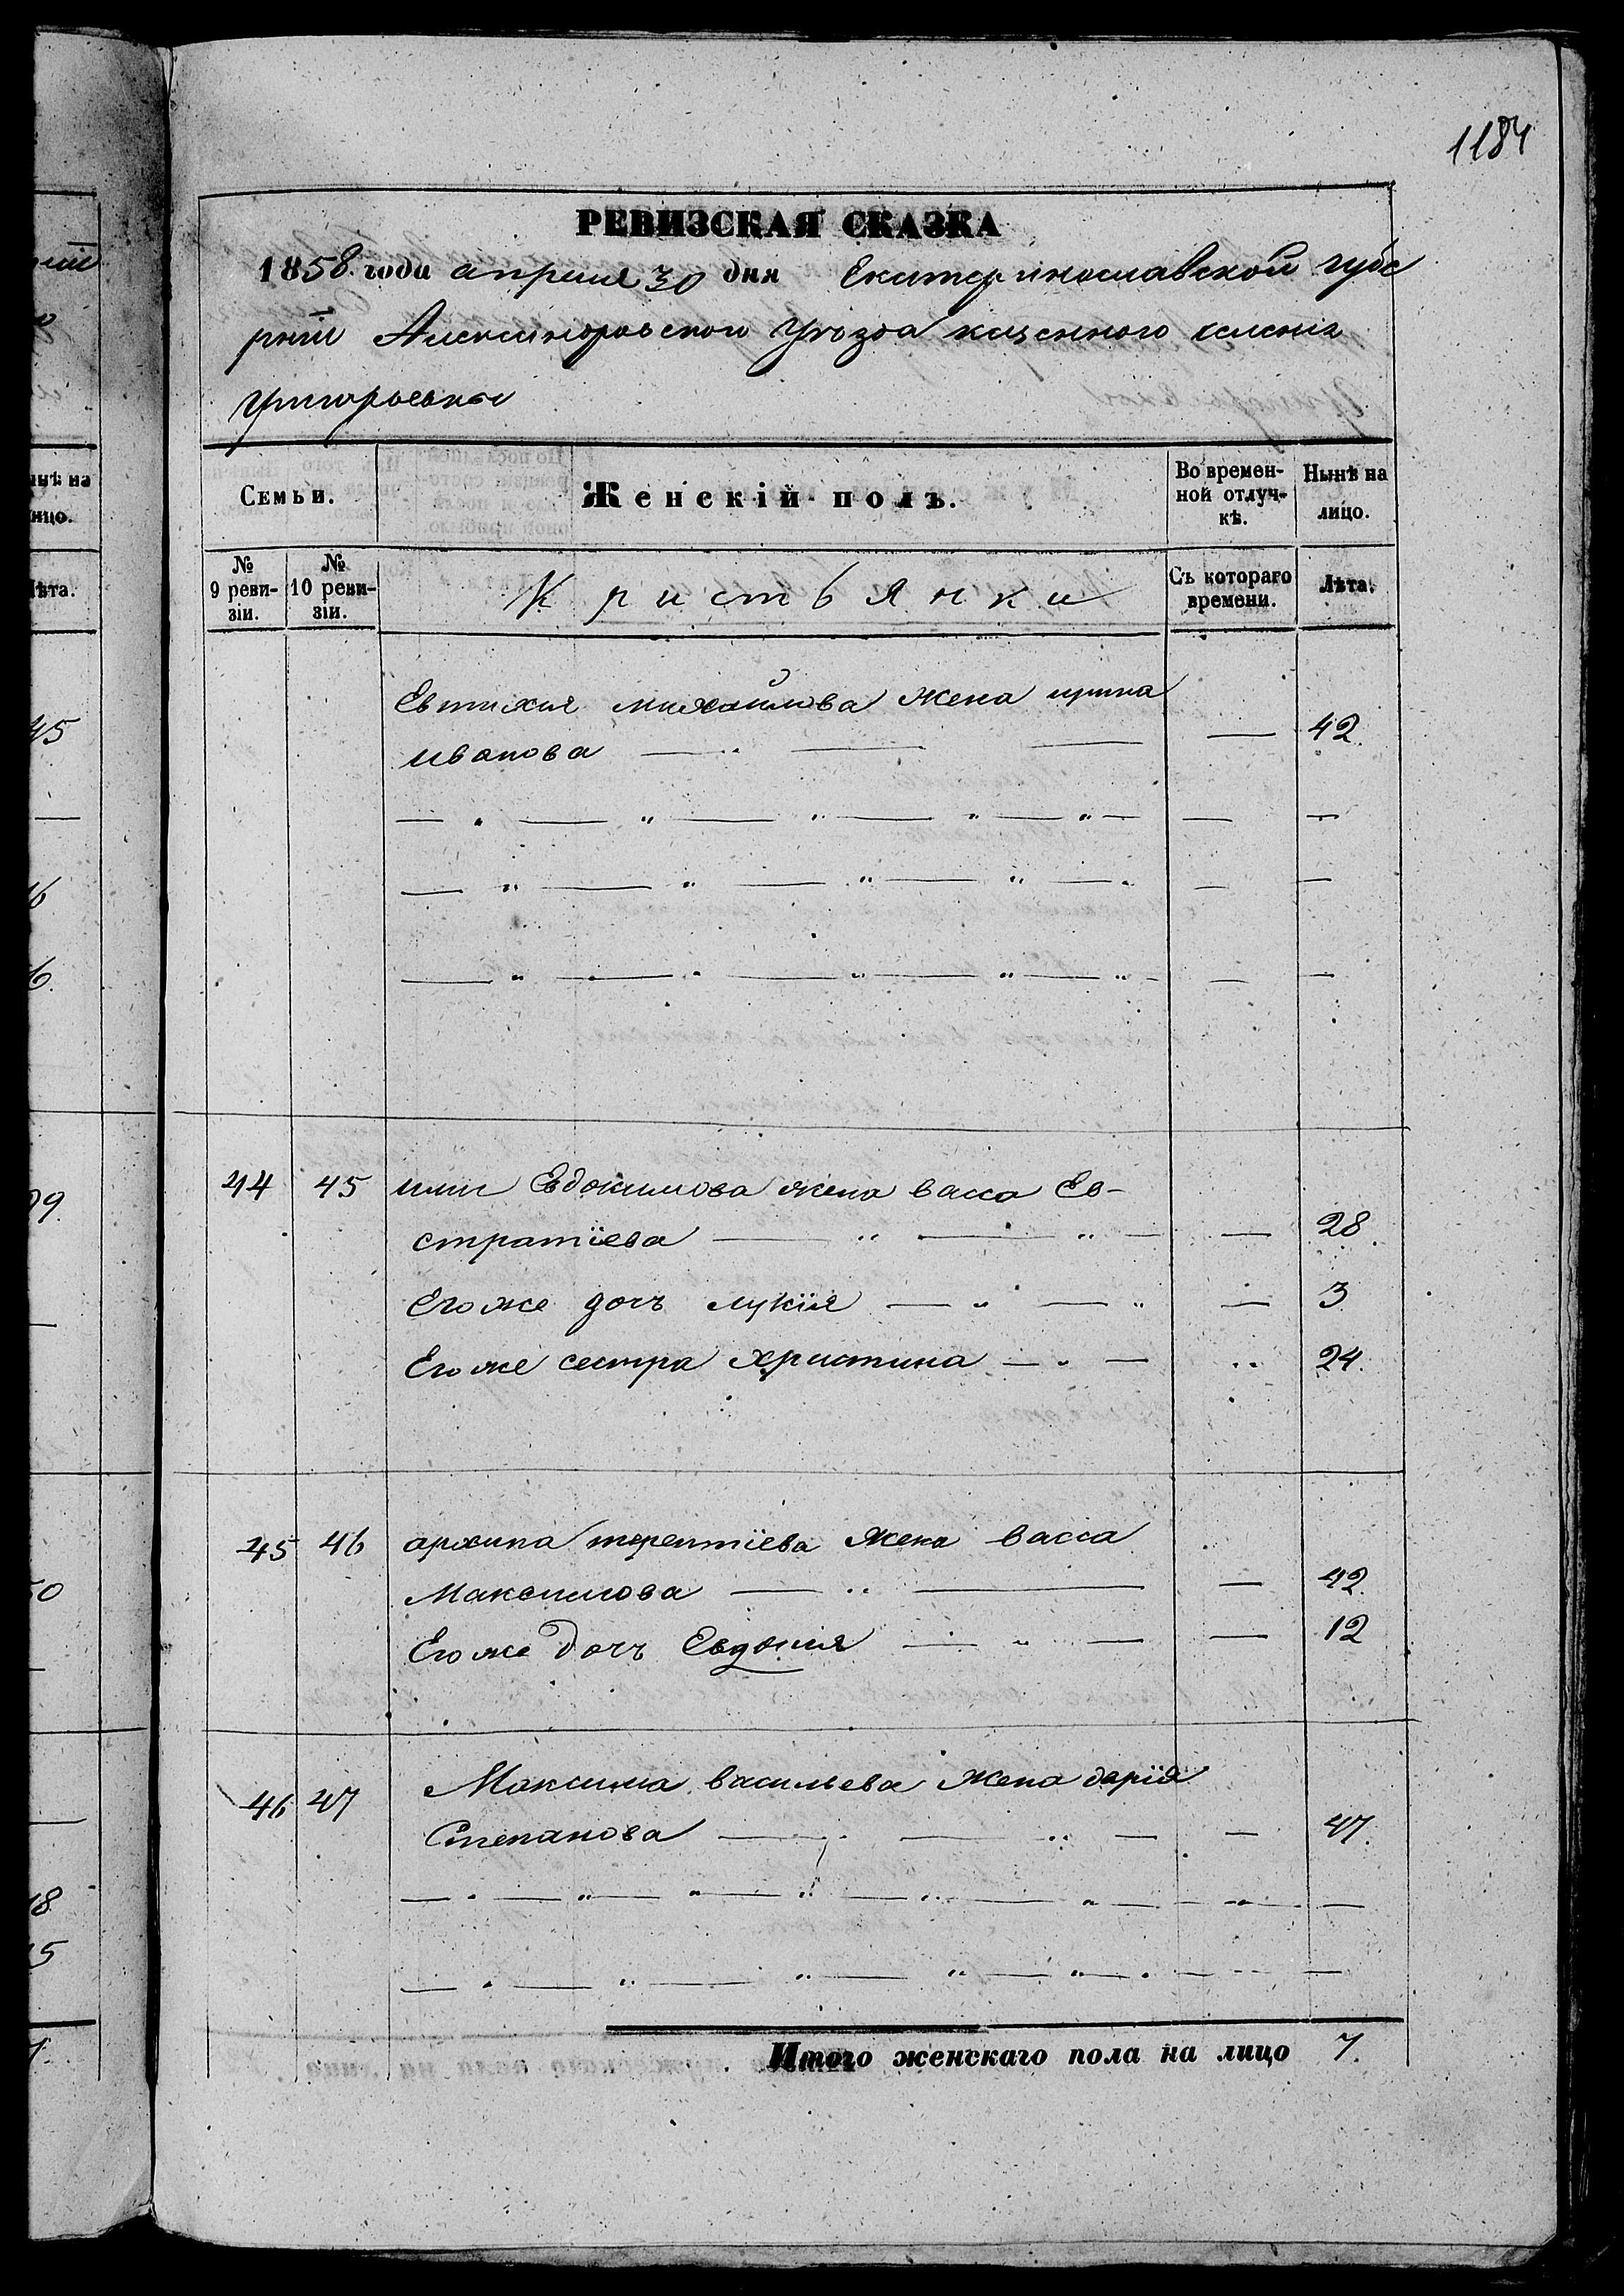 1184
РЕВИЗСКАЯ СКАЗКА
1858 года апреля 30 дня Екатеринославской губе
рніи Александровского уѣзда казенного селенія
Григорьевки
Семьи.
Женскій полъ.
Во времен-
ной отлуч-
кѣ.
Нынѣ на
лицо.
№
9 реви-
зіи.
№
10 реви-
зіи.
Кристьянки
Съ котораго
времени.
Лѣта.
Евтихия михайлова жена ирина
иванова — — — — 42
44 45 или Евдокимова жена васса Ев-
стратіева — " — " — — 28
Егоже дочъ лукія — " — " — 3
Егоже сестра христина — " — " 24
45 46 архипа терентіева жена васса
Максимова — " — — 42
Егоже дочъ Евдокия — " — — 12
46 47 Максима васильева жена дарія
Степанова — " — " — — 47
Итого женскаго пола на лицо 7.
нѣ на
ицо.
ѣта.
45
16
09
50
18
15